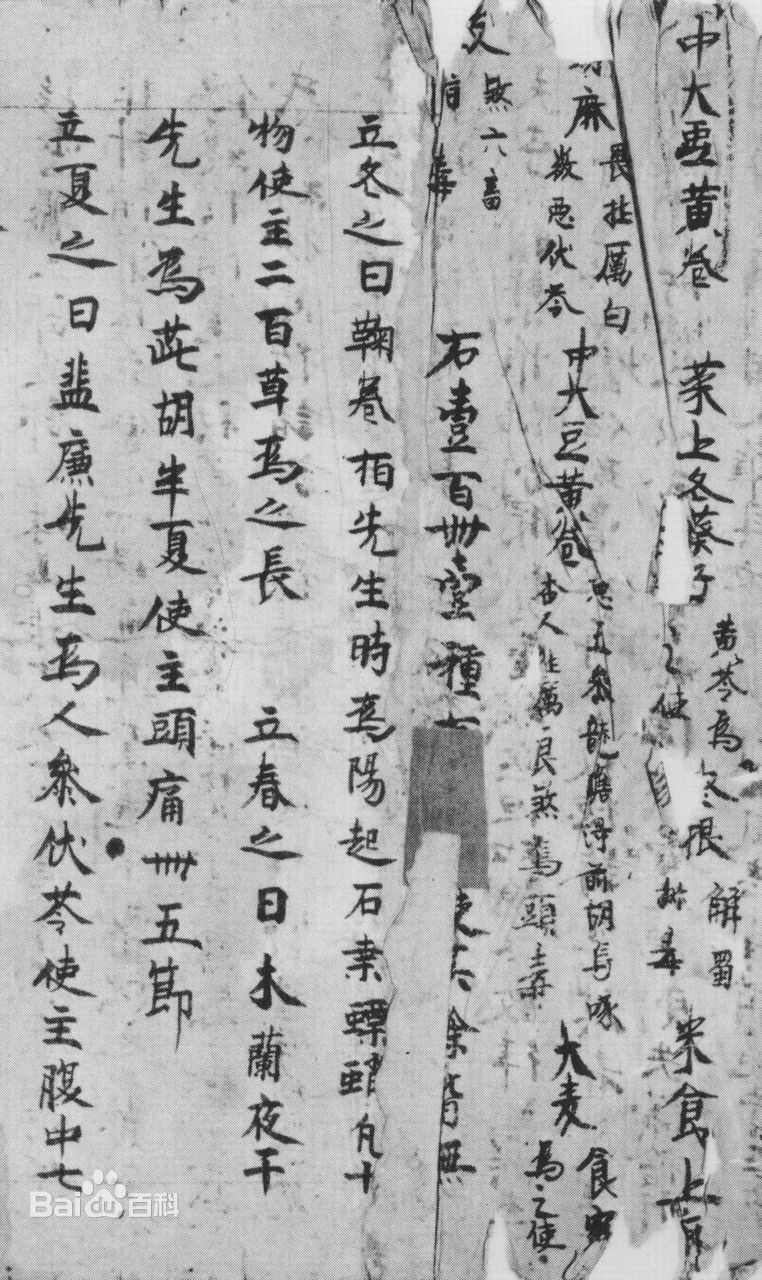 中大豆黄卷 菜上冬葵子 黄芩爲之使 解蜀椒毒 米食上
麻 畏牡厲白 惡伏苓 中大豆黄卷 惡五參龍膽得前胡烏喙 杏人牡厲良煞烏頭毒 大麦 食蜜 爲之使
煞六畜 毒
右壹百卌壹種 使其餘皆無
立冬之日鞠卷柏先生時爲陽起石桒螵蛸凡十
物使主二百草爲之長 立春之日木蘭夜干
先生爲茈胡半夏使主頭痛卌五節
立夏之日蜚廉先生爲人參伏苓使主腹中七
Baidu百科